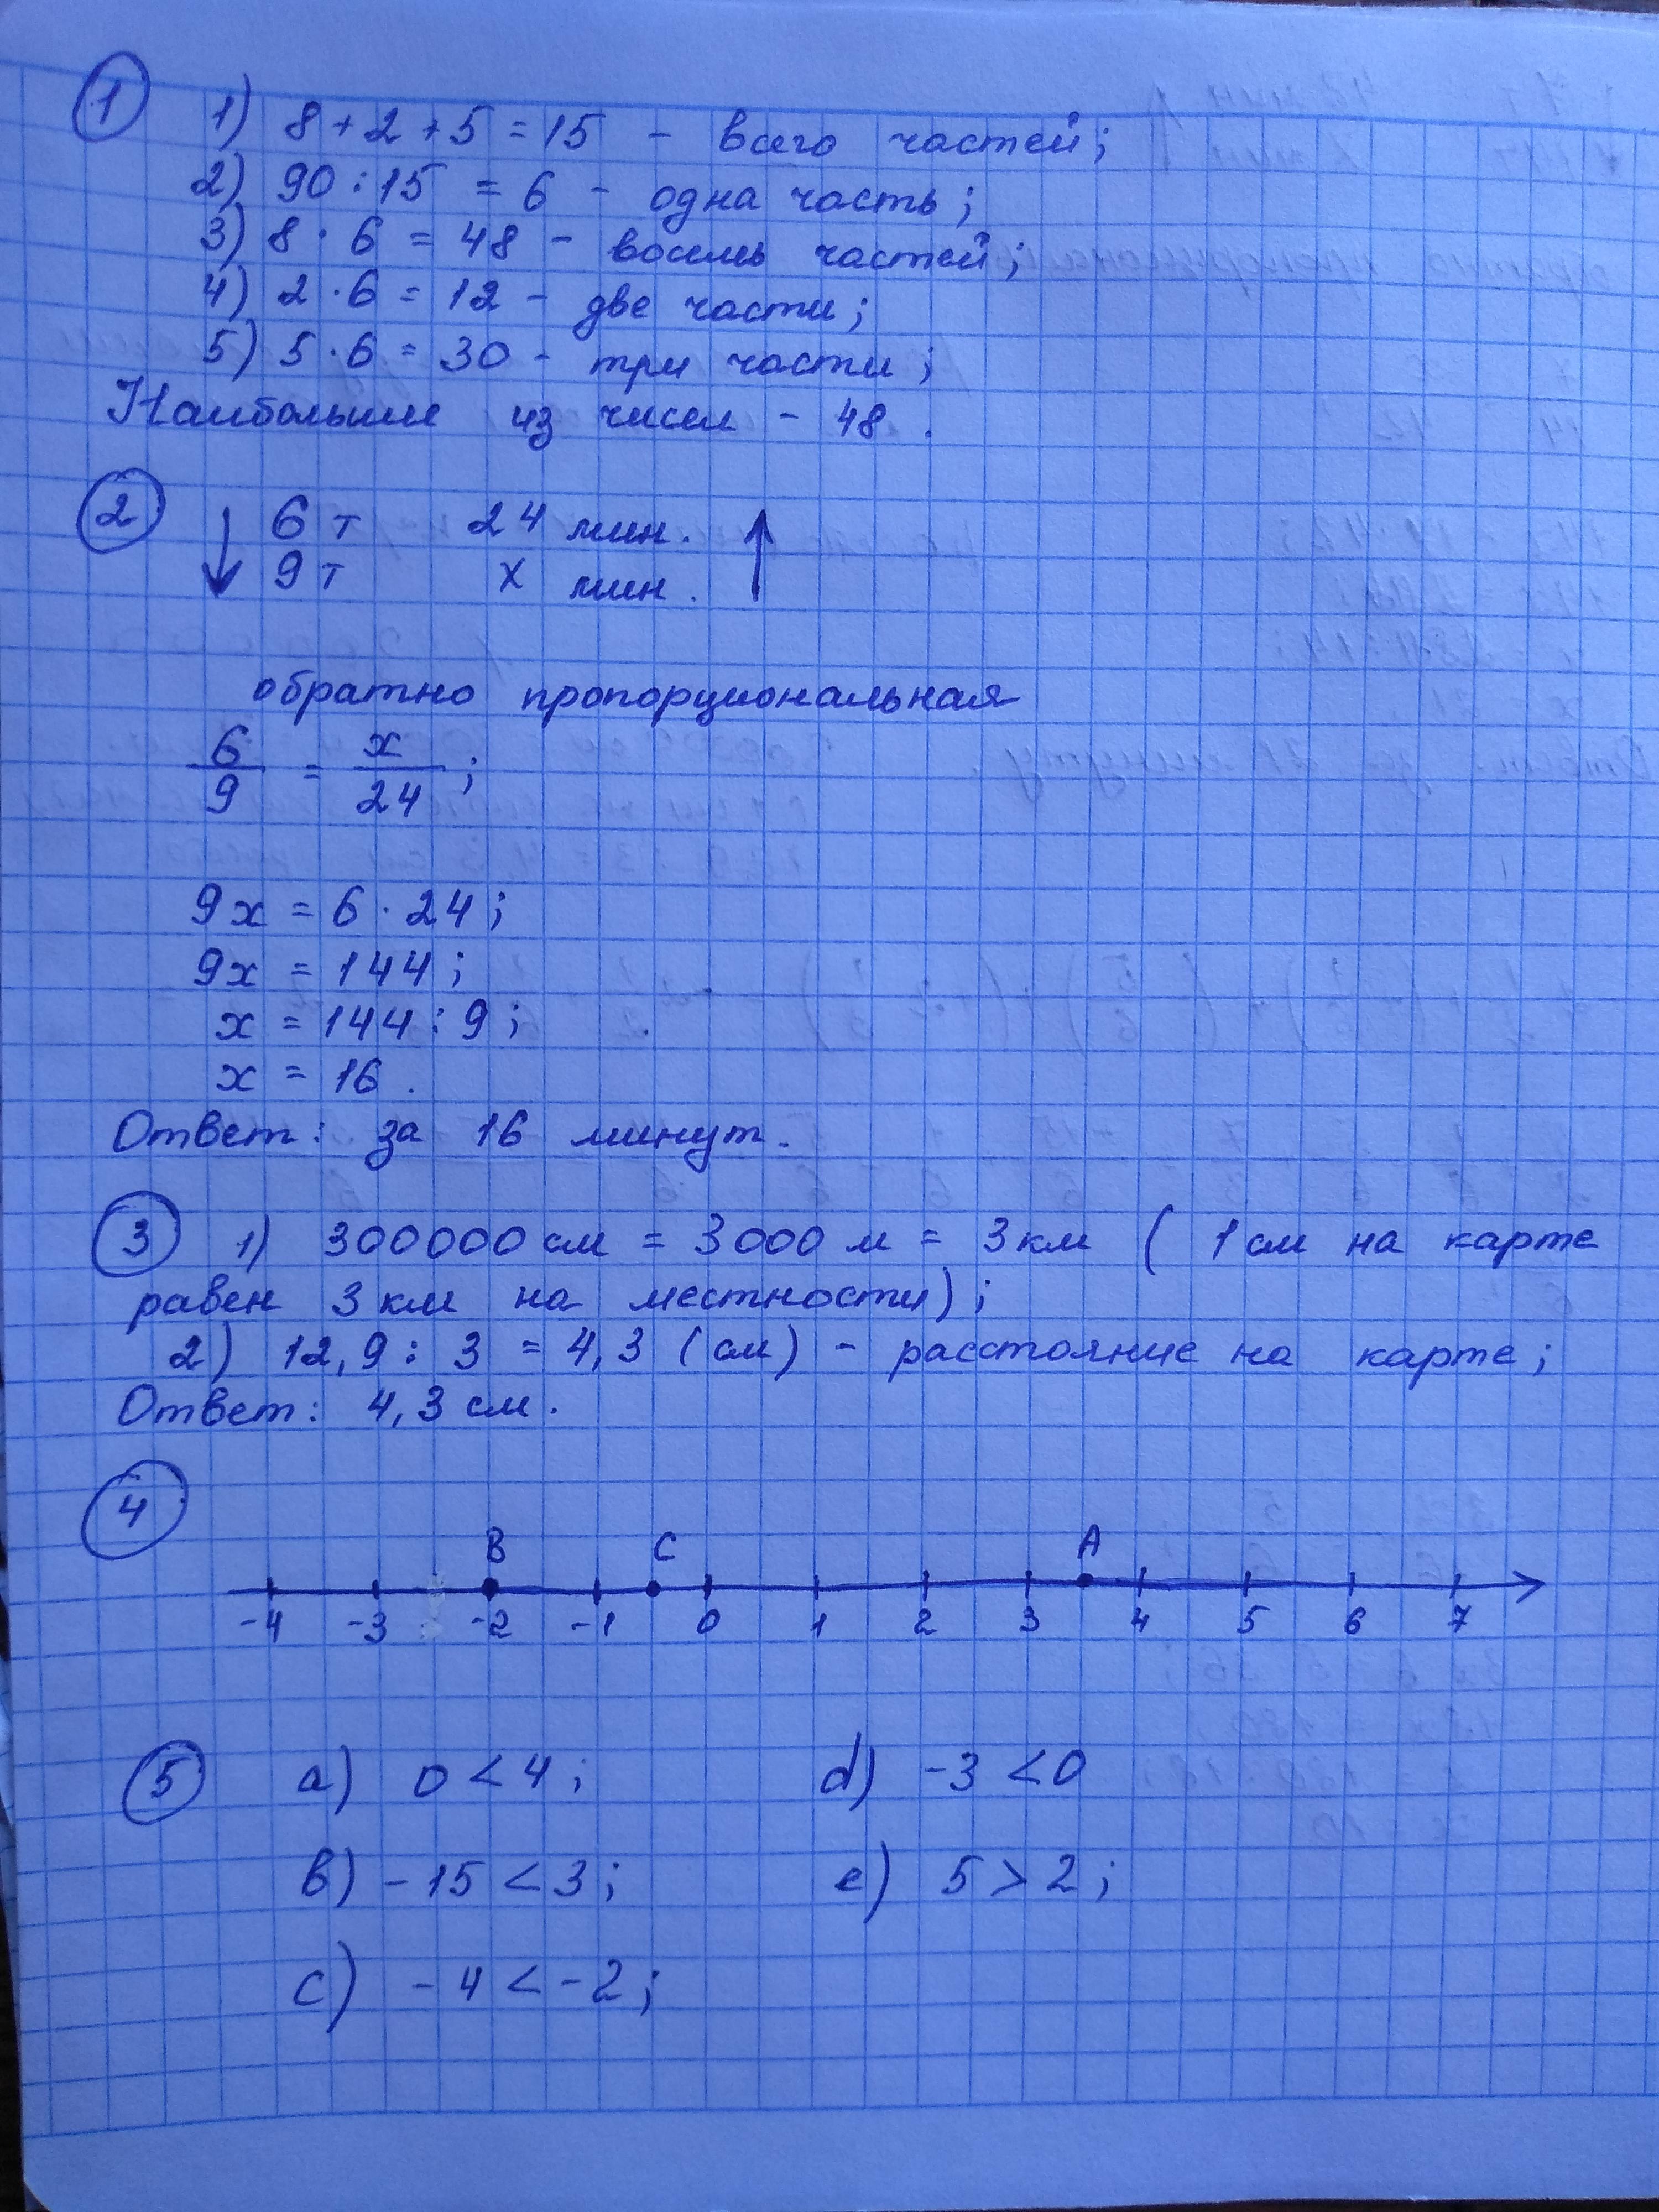 1
1) 8 + 2 + 5 = 15 - всего частей;
2) 90 : 15 = 6 - одна часть;
3) 8 · 6 = 48 - восемь частей;
4) 2 · 6 = 12 - две части;
5) 5 · 6 = 30 - три части;
Наибольшее из чисел - 48.
2
6 т 24 мин.
9 т x мин.
обратно пропорциональная
6/9 = x/24;
9x = 6 · 24;
9x = 144;
x = 144 : 9;
x = 16.
Ответ: за 16 минут.
3 1) 300000 см = 3000 м = 3 км ( 1 см на карте
равен 3 км на местности);
2) 12,9 : 3 = 4,3 (см) - расстояние на карте;
Ответ: 4,3 см.
4
B C A
-4 -3 -2 -1 0 1 2 3 4 5 6 7
5 a) 0 < 4; d) -3 < 0
b) -15 < 3; e) 5 > 2;
c) -4 < -2;